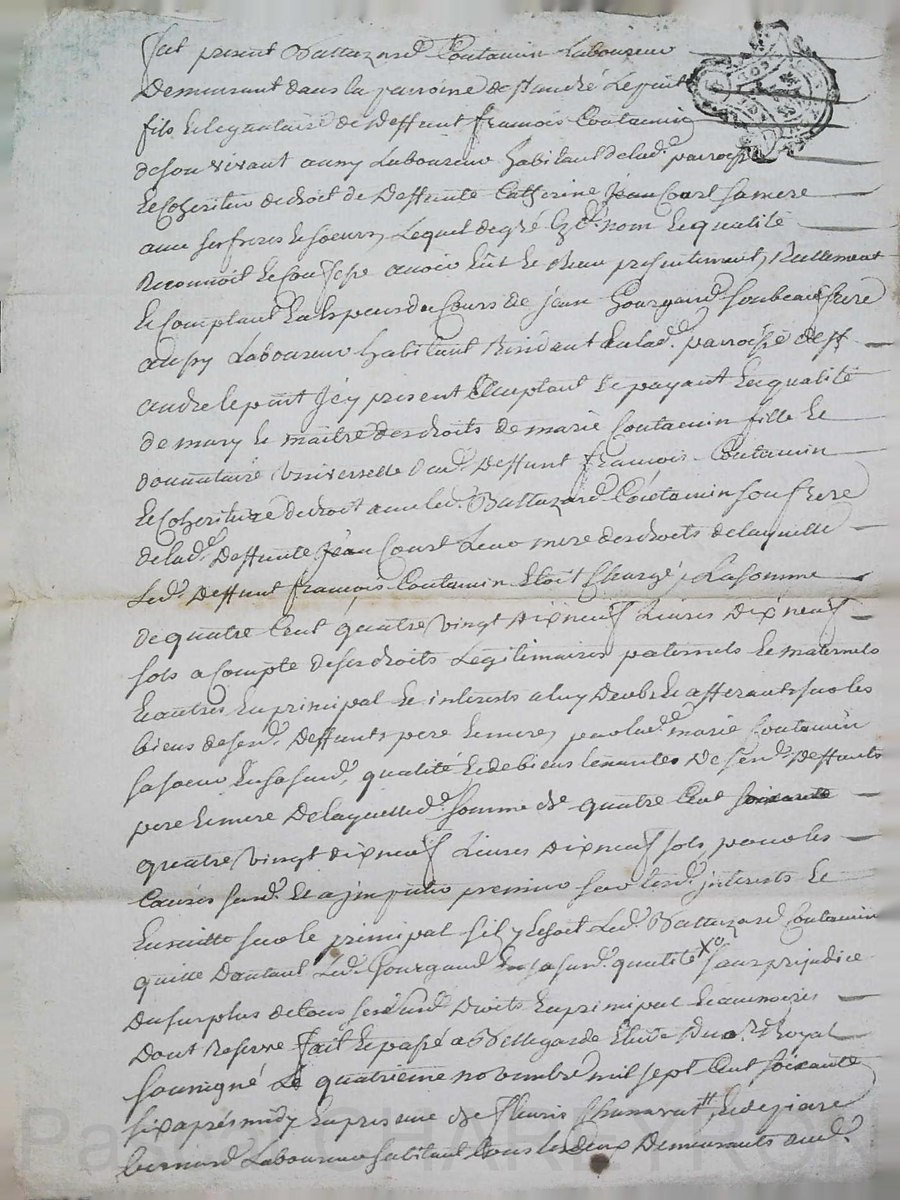 fut present Baltazard Coutamin Laboureur
Demeurant dans la parroisse de St andré le puit
fils et legataire de Deffunt françois Coutamin
de son vivant aussy Laboureur habitant de lad. parroisse
et Coheritier de droit de Deffunte Catherine Jean Court sa mere
avec ses freres et soeurs, Lequel de gré esd. nom et qualité
Reconnoit et Confesse avoir eût et Receu presentement, Reellement
et Comptant en Especes de Cours de jean gourgaud son beau frere
aussy Laboureur habitant Residant en lad. parroisse de St
andre le puit Icy present acceptant et payant en qualité
de mary et maître des droits de marie Coutamin fille et
donnataire universelle dud. Deffunt françois Coutamin
et Coheritiere de droit avec led. Baltazard Coutamin son frere
de lad. Deffunte Jean Court Leur mere des droits de laquelle
Led. Deffunt françois Coutamin Etoit Chargé, La somme
de quatre Cent quatre vingt Dix neuf Livres Dix neuf
sols a Compte de ses droits Legitimaires paternels et maternels
et autres En principal et interests a luy Deubs et afferants sur les
biens de sesd. Deffunts pere et mere, par lad. marie Coutamin
sa soeur En sa susd. qualité et de biens tenante De sesd. Deffunts
pere et mere De laquelle d. somme de quatre Cent soixante
quatre vingt dix neuf Livres Dix neuf sols pour les
Causes susd. Et a jmputer premier sur lesd. jnterests et
Ensuitte sur le principal s'il y Echoit Led. Baltazard Coutamin
quitte Dautant Led. Gourgaud En sa susd. qualité Xo sans prejudice
Du surplus de tous ses susd. Droits En principal et accessoires
Dont Reserve fait et passé a Bellegarde Etude Du no.re Royal
soussigné Le quatrieme novembre mil sept Cent soixante
six aprés midy En presence de fleuris et de pierre
bernard Laboureur habitant tous les deux Demeurants aud.
Pascal CHAREYRON